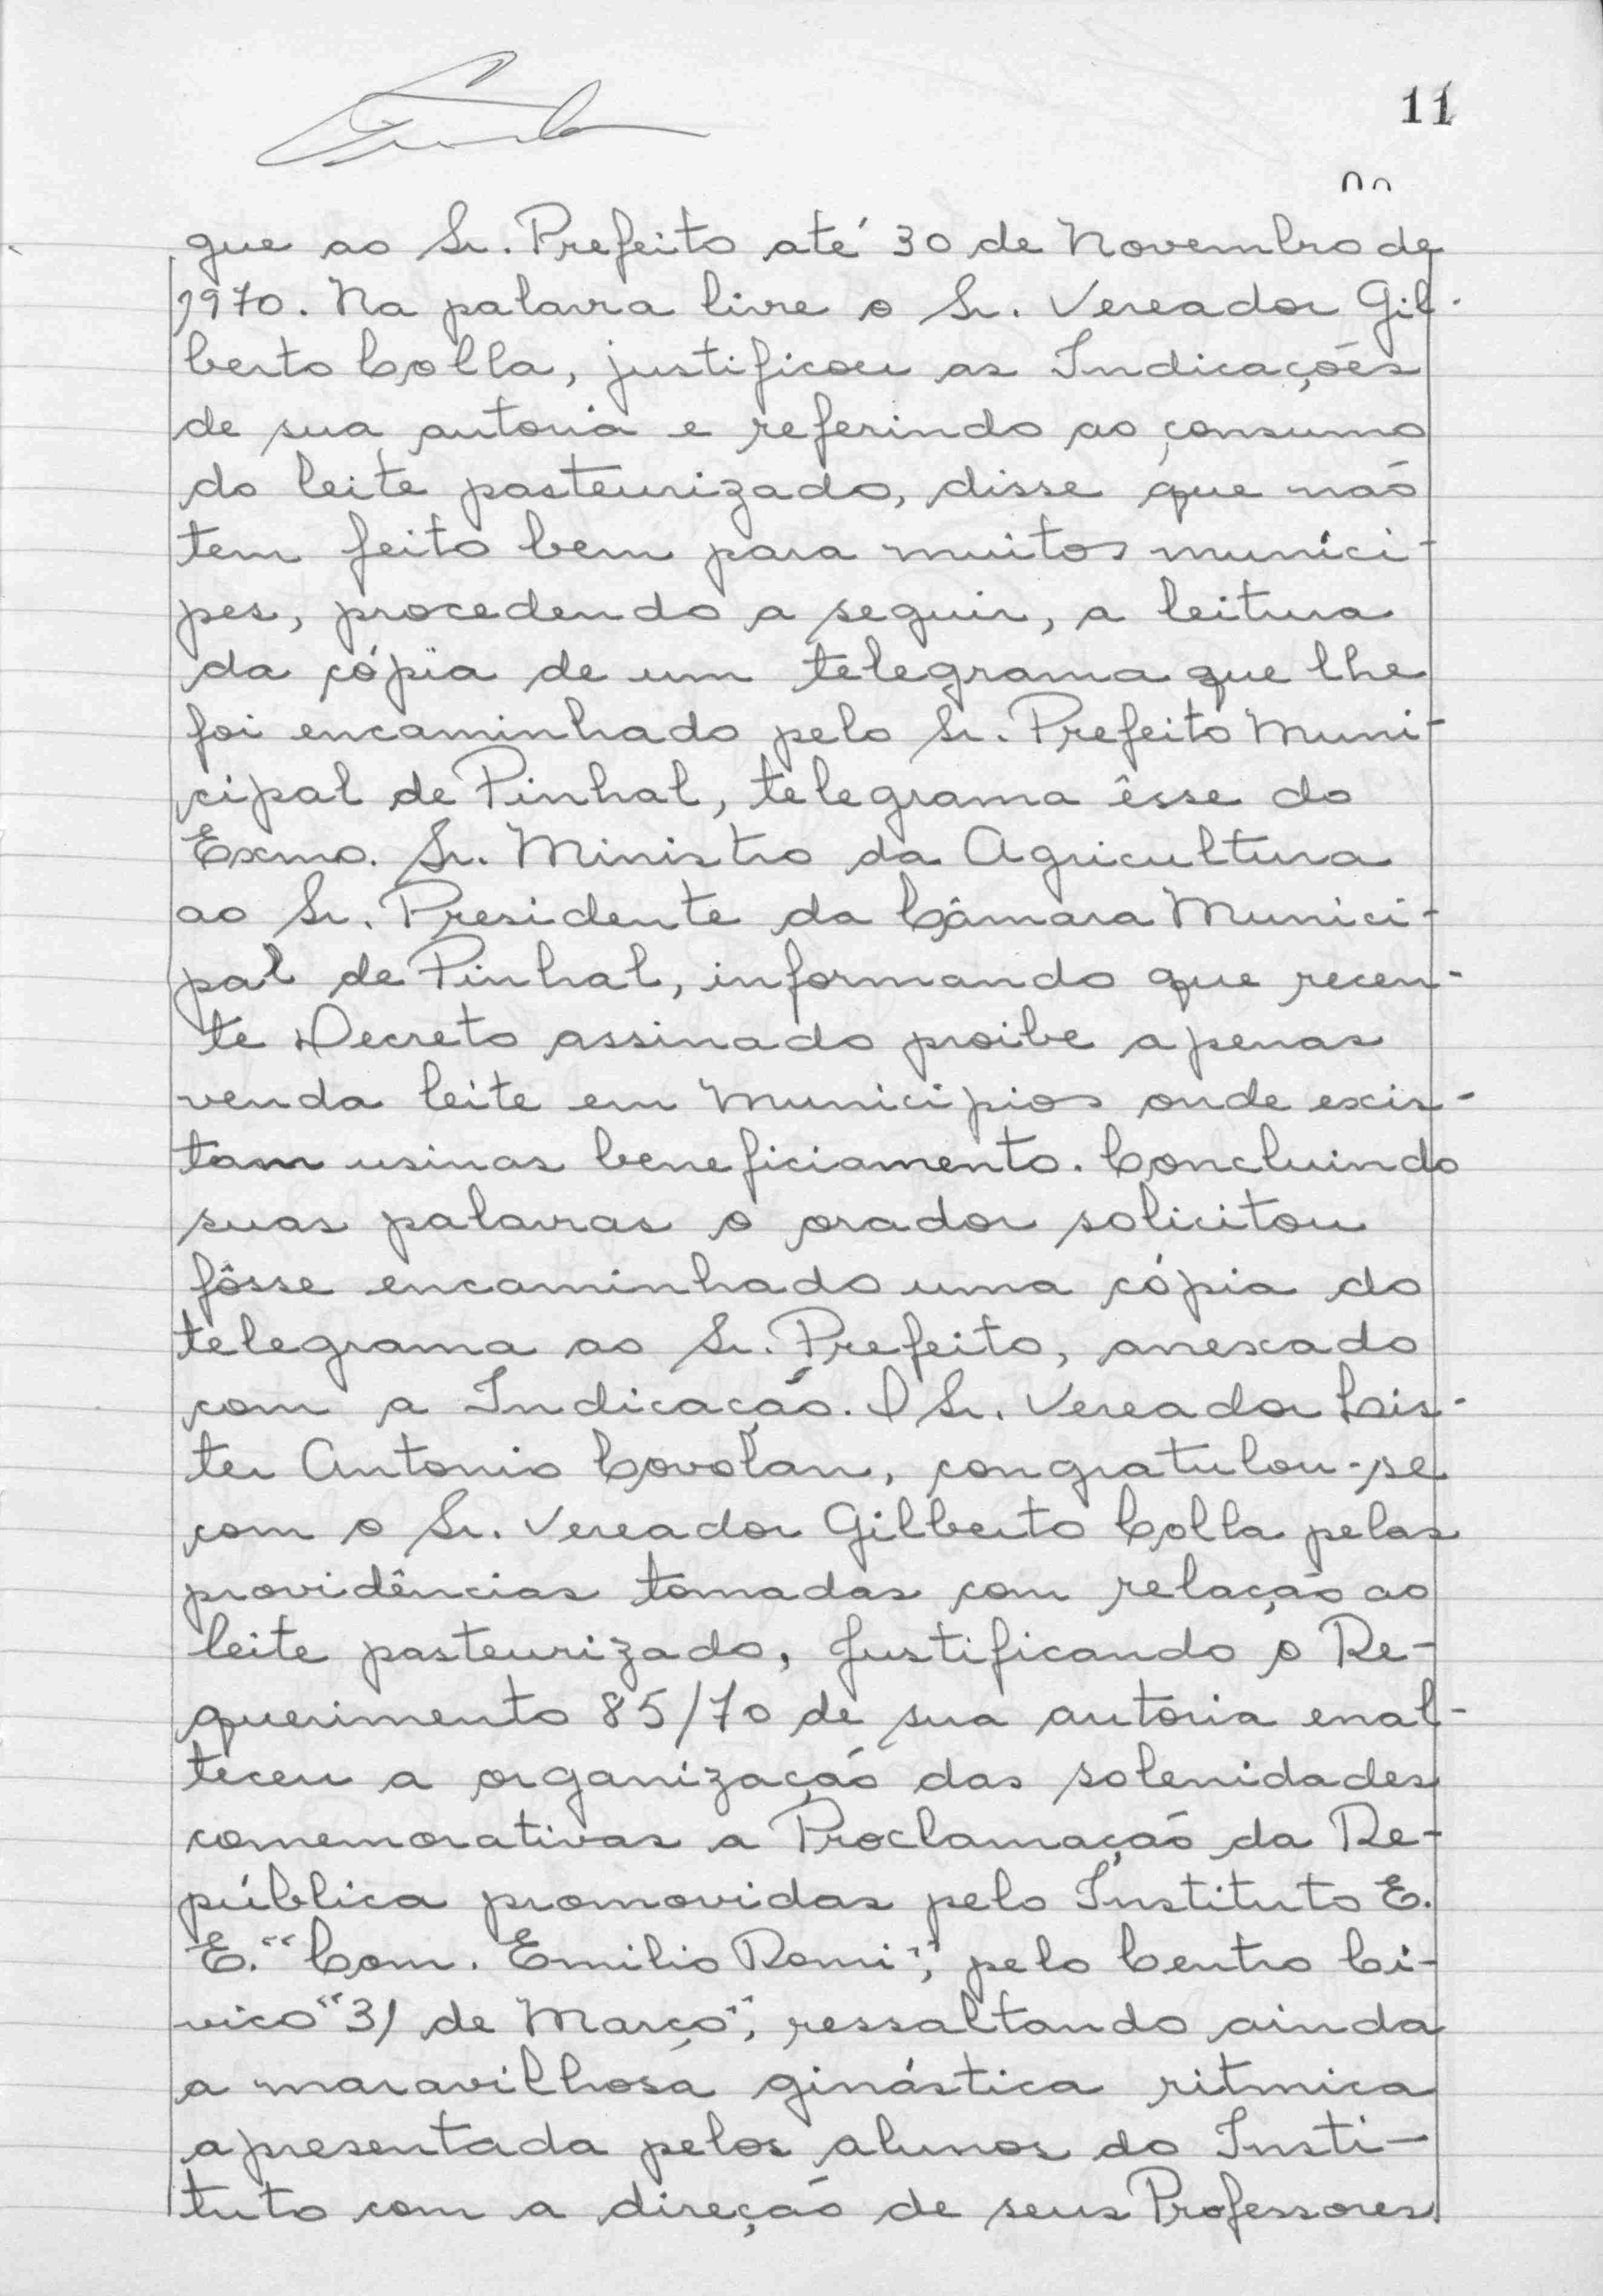 11
que ao Sr. Prefeito até 30 de Novembro de
1970. Na palavra livre o Sr. Vereador Gil-
berto Colla, justificou as Indicações
de sua autoria e referindo ao consumo
do leite pasteurizado, disse que não
tem feito bem para muitos muníci-
pes, procedendo a seguir, a leitura
da cópia de um telegrama que lhe
foi encaminhado pelo Sr. Prefeito Muni-
cipal de Pinhal, telegrama êsse do
Exmo. Sr. Ministro da Agricultura
ao Sr. Presidente da Câmara Munici-
pal de Pinhal, informando que recen-
te Decreto assinado proibe apenas
venda leite em Municipios onde exis-
tam usinas beneficiamento. Concluindo
suas palavras o orador solicitou
fôsse encaminhado uma cópia do
telegrama ao Sr. Prefeito, anexado
com a Indicação. O Sr. Vereador Lis-
ter Antonio Covolan, congratulou-se
com o Sr. Vereador Gilberto Colla pelas
providências tomadas com relação ao
leite pasteurizado, Justificando o Re-
querimento 85/70 de sua autoria enal-
teceu a organização das solenidades
comemorativas a Proclamação da Re-
pública promovidas pelo Instituto E.
E. "Com. Emilio Romi", pelo Centro Ci-
vico "31 de Março", ressaltando ainda
a maravilhosa ginástica ritmica
apresentada pelos alunos do Insti-
tuto com a direção de seus Professores